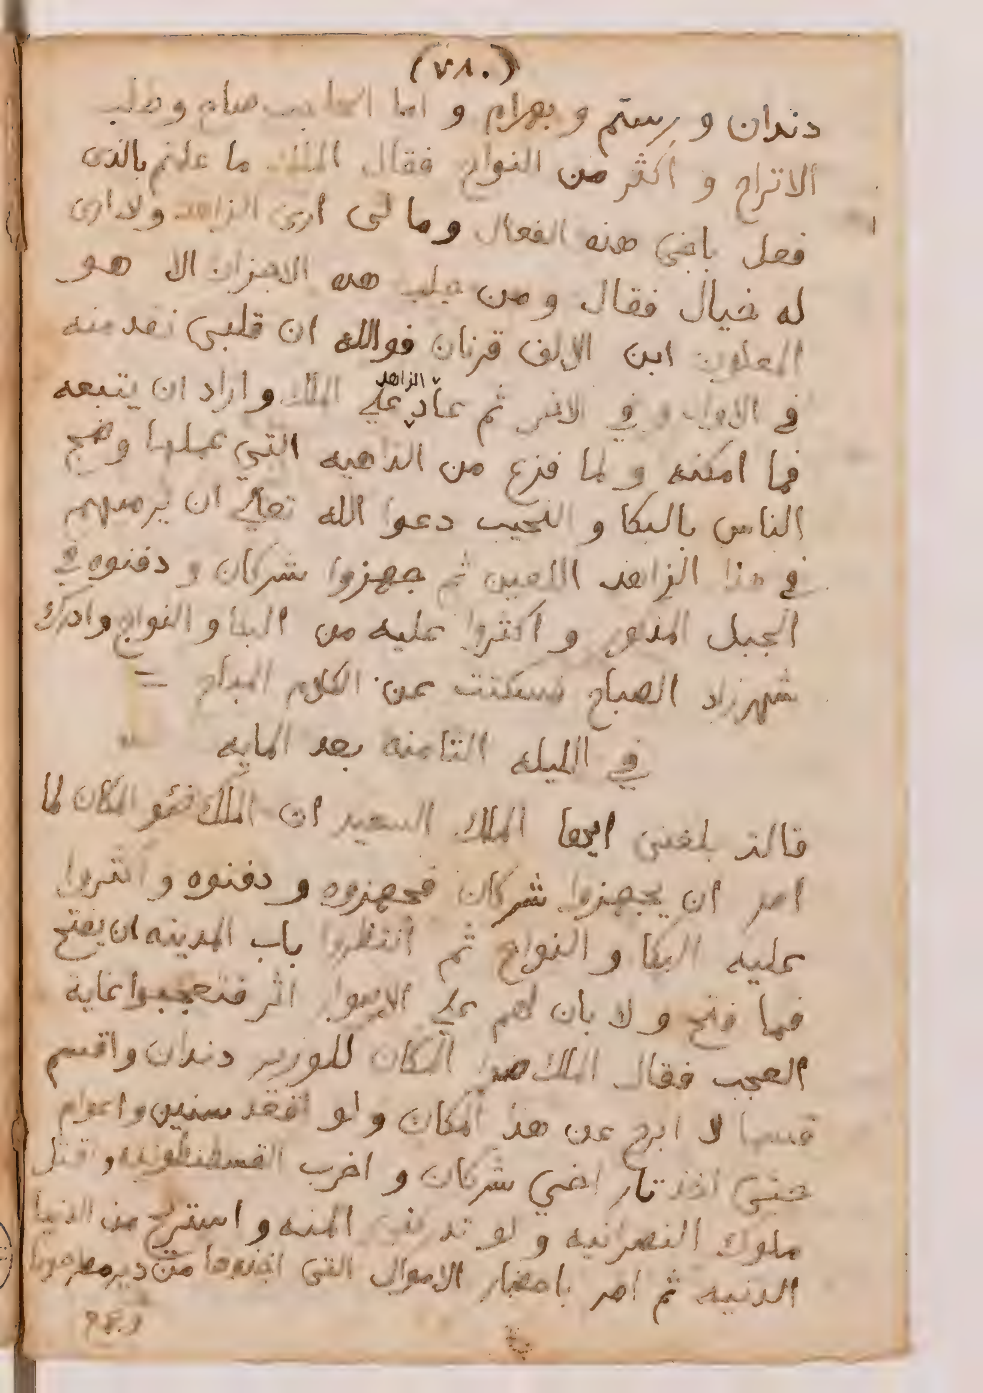 (٧٨٠)
دندان و رستم و بهرام و اما الحاجب صاح و طلب
الاتراح و اكثر من النواح فقال الملك ما علمتم بالذى
فعل باخى هذه الفعال وما لى ارى الزاهد ولا ارى
له خيال فقال و من جلب هذه الاحزان الا هو
الملعون ابن الالف قرنان فوالله ان قلبى نفد منه
فى الاول و فى الاخر ثم عاد الزاهد على الملك و اراد ان يتبعه
فما امكنه و لما فزع من الداهيه التي عملها و ضج
الناس بالبكا و النحيب دعوا الله تعالى ان يرميهم
في هذا الزاهد اللعين ثم جهزوا شركان و دفنوه في
الجبل المذكور و اكثروا عليه من البكا و النواح وادرك
شهرزاد الصباح فسكتت عن الكلام المباح =
في الليله الثامنه بعد المايه
قالت بلغنى ايها الملك السعيد ان الملك ضو المكان لما
امر ان يجهزوا شركان فجهزوه و دفنوه و اكثروا
عليه البكا و النواح ثم انتظروا باب المدينه ان يفتح
فما فتح و لا بان لهم على الاسوار اثر فتعجبوا غاية
العجب فقال الملك ضوا المكان للوزير دندان و اقسم
قسما لا ابرح عن هذا المكان و لو اقعد سنين و اعوام
حتى اخذ تار اخي شركان و اخرب القسطنطونيه و اقتل
ملوك النصرانيه و لو تدركنى المنه و استريح من الدنيا
الدنيه ثم امر باحضار الاموال التى اخذوها من دير مطرحونا